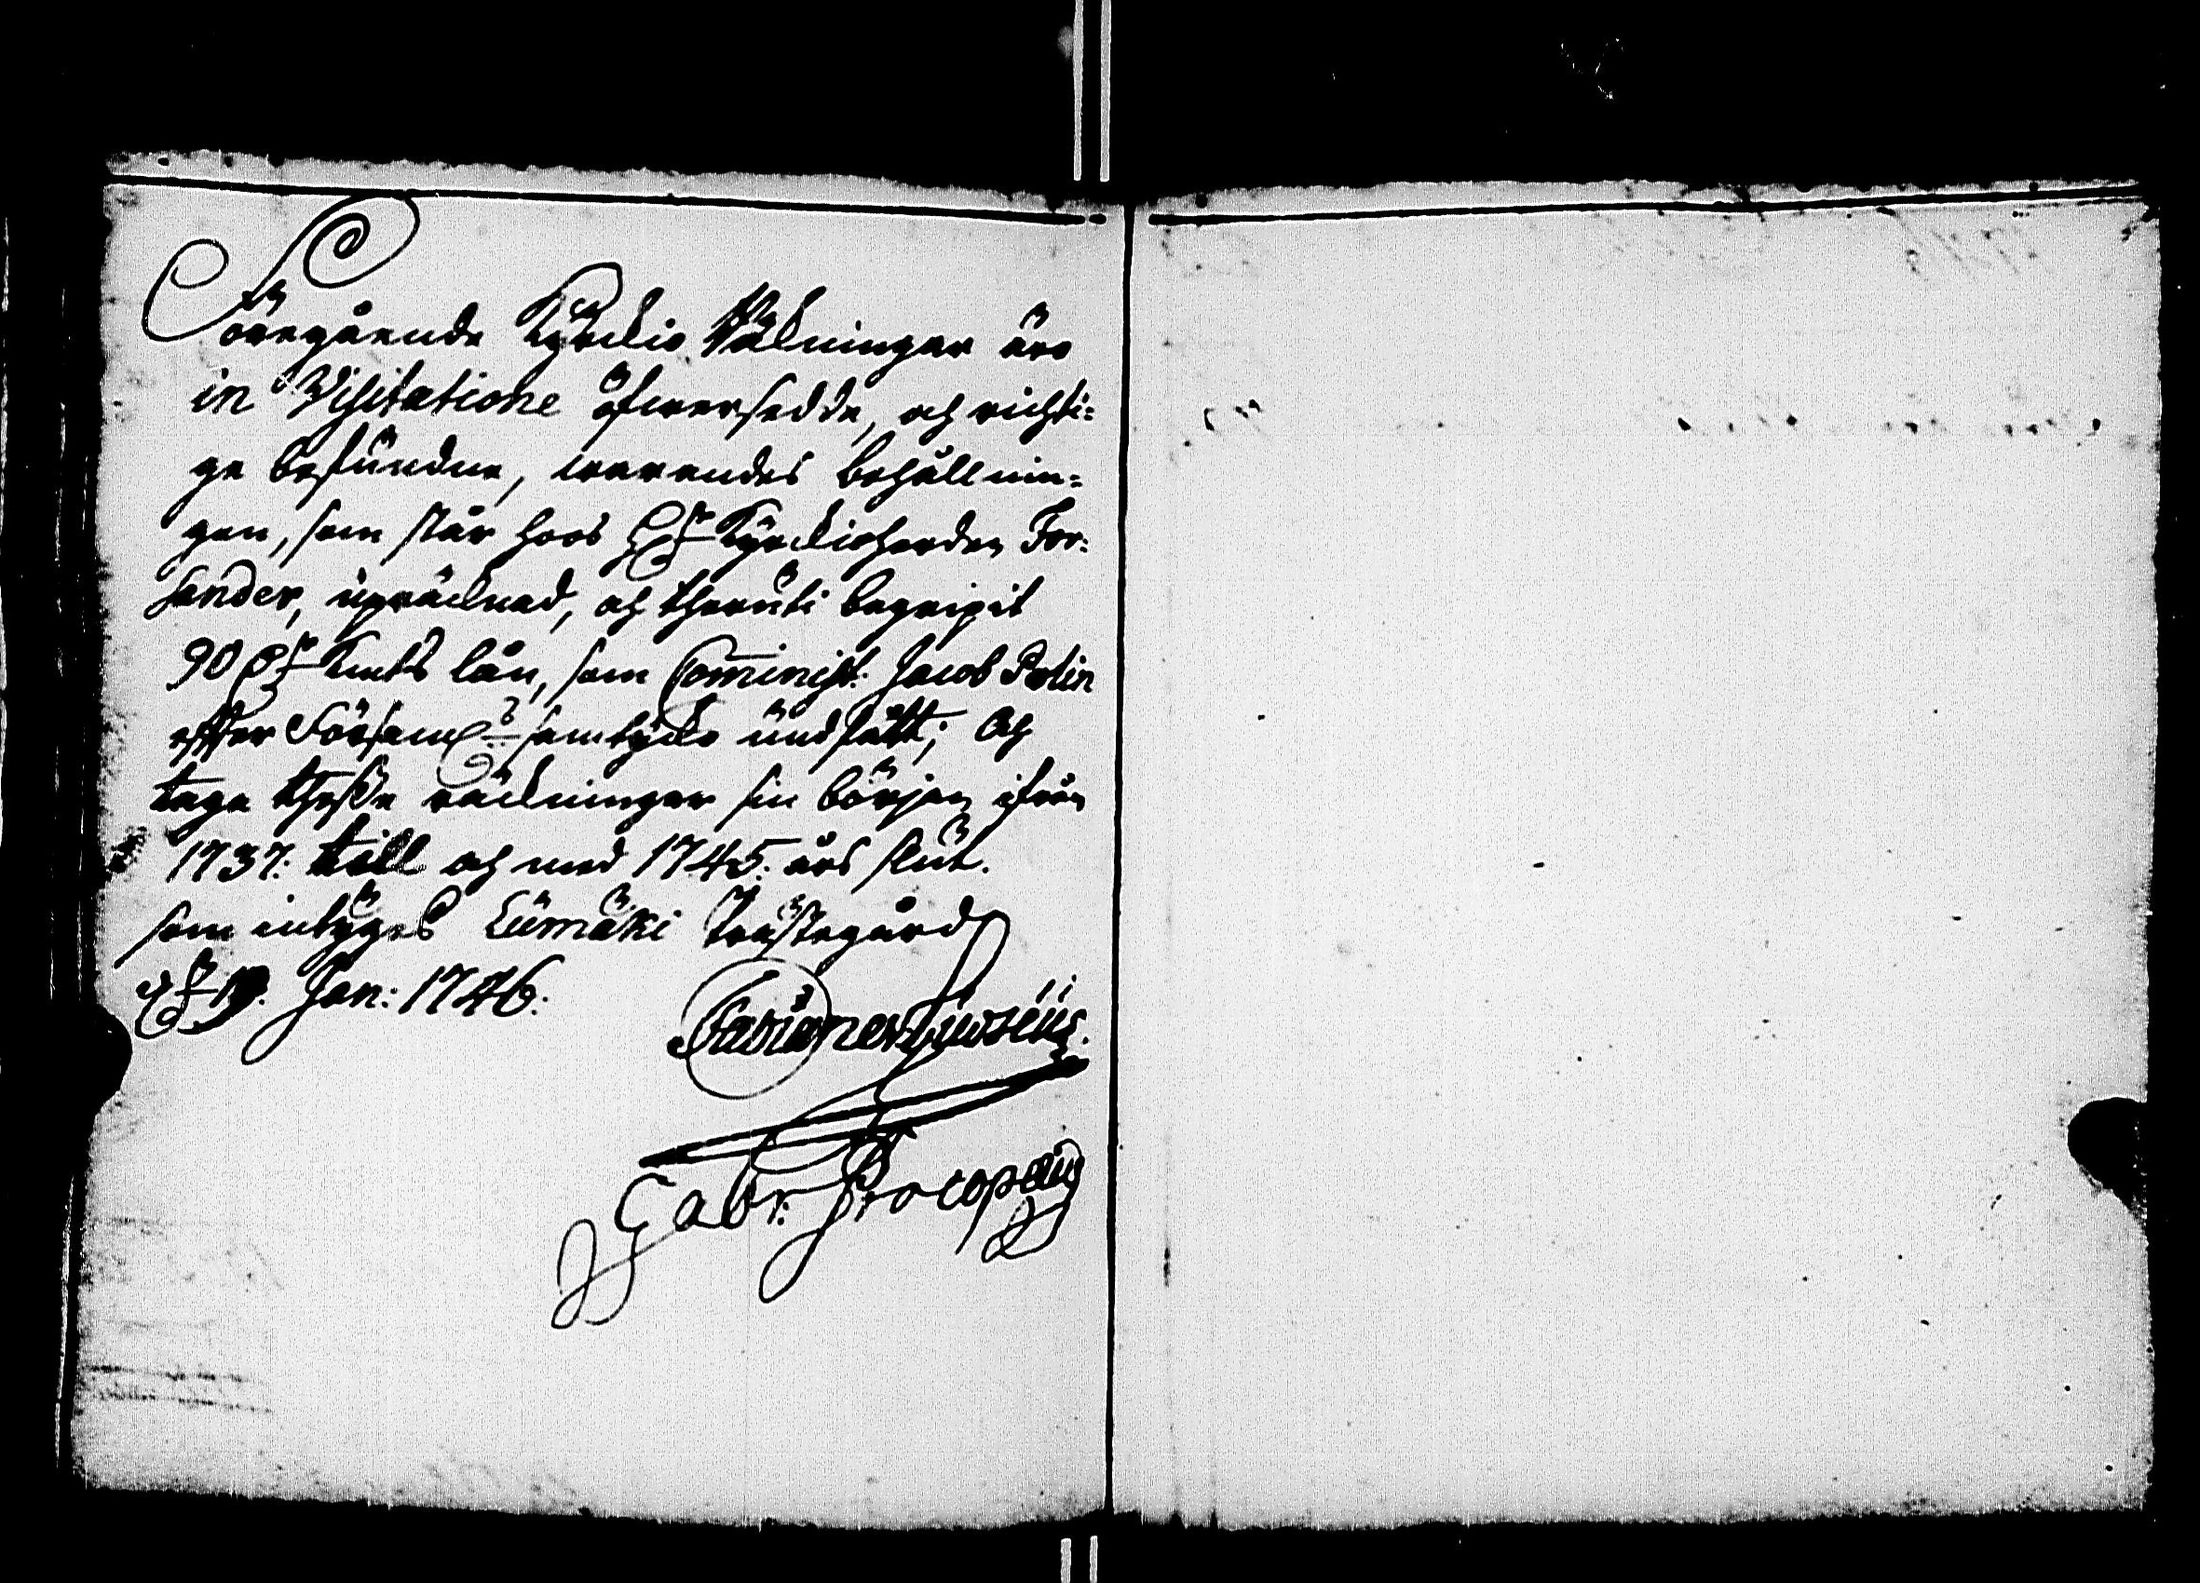 Föregående Kyrckio Räkningar äro
in Visitatione öfwersedde, och richti=
ge befundne, warandes behållnin=
gen, som står hoos H:r Kyrckioherden For=
sander, upräcknad, och theruti begripit
90 D:r K:mts lån, som Comminist: Jacob Polin
effter Församl:s samtycke undfått; och
taga thesse räckningar sin början ifrån
1737. till och med 1745. års slut.
som intygas Lümäki Prästegård
d: 19. Jan: 1746.
Gabr: Procopæus